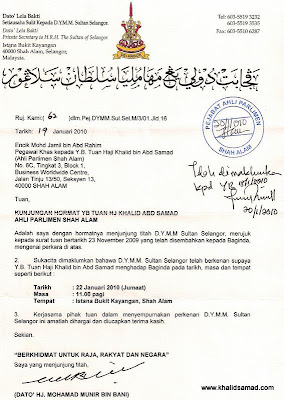 Dato' Lela Bakti
Setiausaha Sulit Kepada D.Y.M.M. Sultan Selangor.
Dato' Lela Bakti
Private Secretary to H.R.H. The Sultan of Selangor
Istana Bukit Kayangan
40000 Shah Alam, Selangor,
Malaysia.
Tel: 603-5519 3232
603-5519 3535
Fax: 603-5510 6287
Ruj. Kami: ( 62 )dlm.Pej.DYMM.Sul.Sel.M/3/01.Jld.16
Tarikh: 19 Januari 2010
PEJABAT AHLI PARLIMEN
SHAH ALAM
Encik Mohd Jamil bin Abd Rahim
Pegawai Khas kepada Y.B. Tuan Haji Khalid bin Abd Samad
(Ahli Parlimen Shah Alam)
No. 6C, Tingkat 3, Block 1,
Business Worldwide Centre,
Jalan Tinju 13/50, Seksyen 13,
40000 SHAH ALAM
Telah dimaklumkan
kpd YB
20/1/2010
Tuan,
KUNJUNGAN HORMAT YB TUAN HJ KHALID ABD SAMAD
AHLI PARLIMEN SHAH ALAM
Adalah saya dengan hormatnya menjunjung titah D.Y.M.M Sultan Selangor, merujuk
kepada surat tuan bertarikh 23 November 2009 yang telah disembahkan kepada Baginda,
mengenai perkara di atas.
2. Sukacita dimaklumkan bahawa D.Y.M.M. Sultan Selangor telah berkenan supaya
Y.B. Tuan Haji Khalid bin Abd Samad menghadap Baginda pada tarikh, masa dan tempat
seperti berikut :
Tarikh : 22 Januari 2010 (Jumaat)
Masa : 11.00 pagi
Tempat : Istana Bukit Kayangan, Shah Alam
3. Kerjasama pihak tuan dalam menyempurnakan perkenan D.Y.M.M. Sultan
Selangor ini amatlah dihargai dan diucapkan terima kasih.
Sekian.
"BERKHIDMAT UNTUK RAJA, RAKYAT DAN NEGARA"
Saya yang menjunjung titah,
(DATO' HJ. MOHAMAD MUNIR BIN BANI)
www.khalidsamad.com